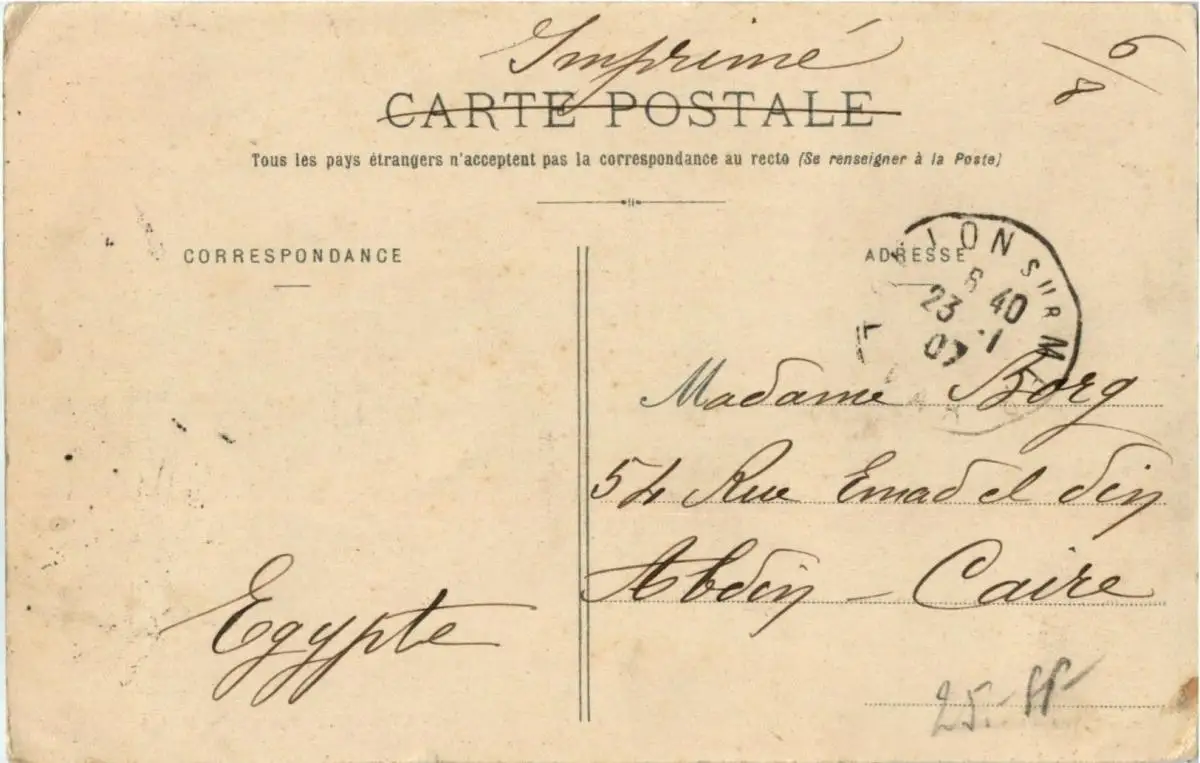 Imprimé
6/8
CARTE POSTALE
Tous les pays étrangers n'acceptent pas la correspondance au recto (Se renseigner à la Poste)
CORRESPONDANCE
ADRESSE
ION SUR M
6 40
23 -1
07
Madame Borg
54 Rue Emad el din
Abdin - Caire
Egypte
25.-